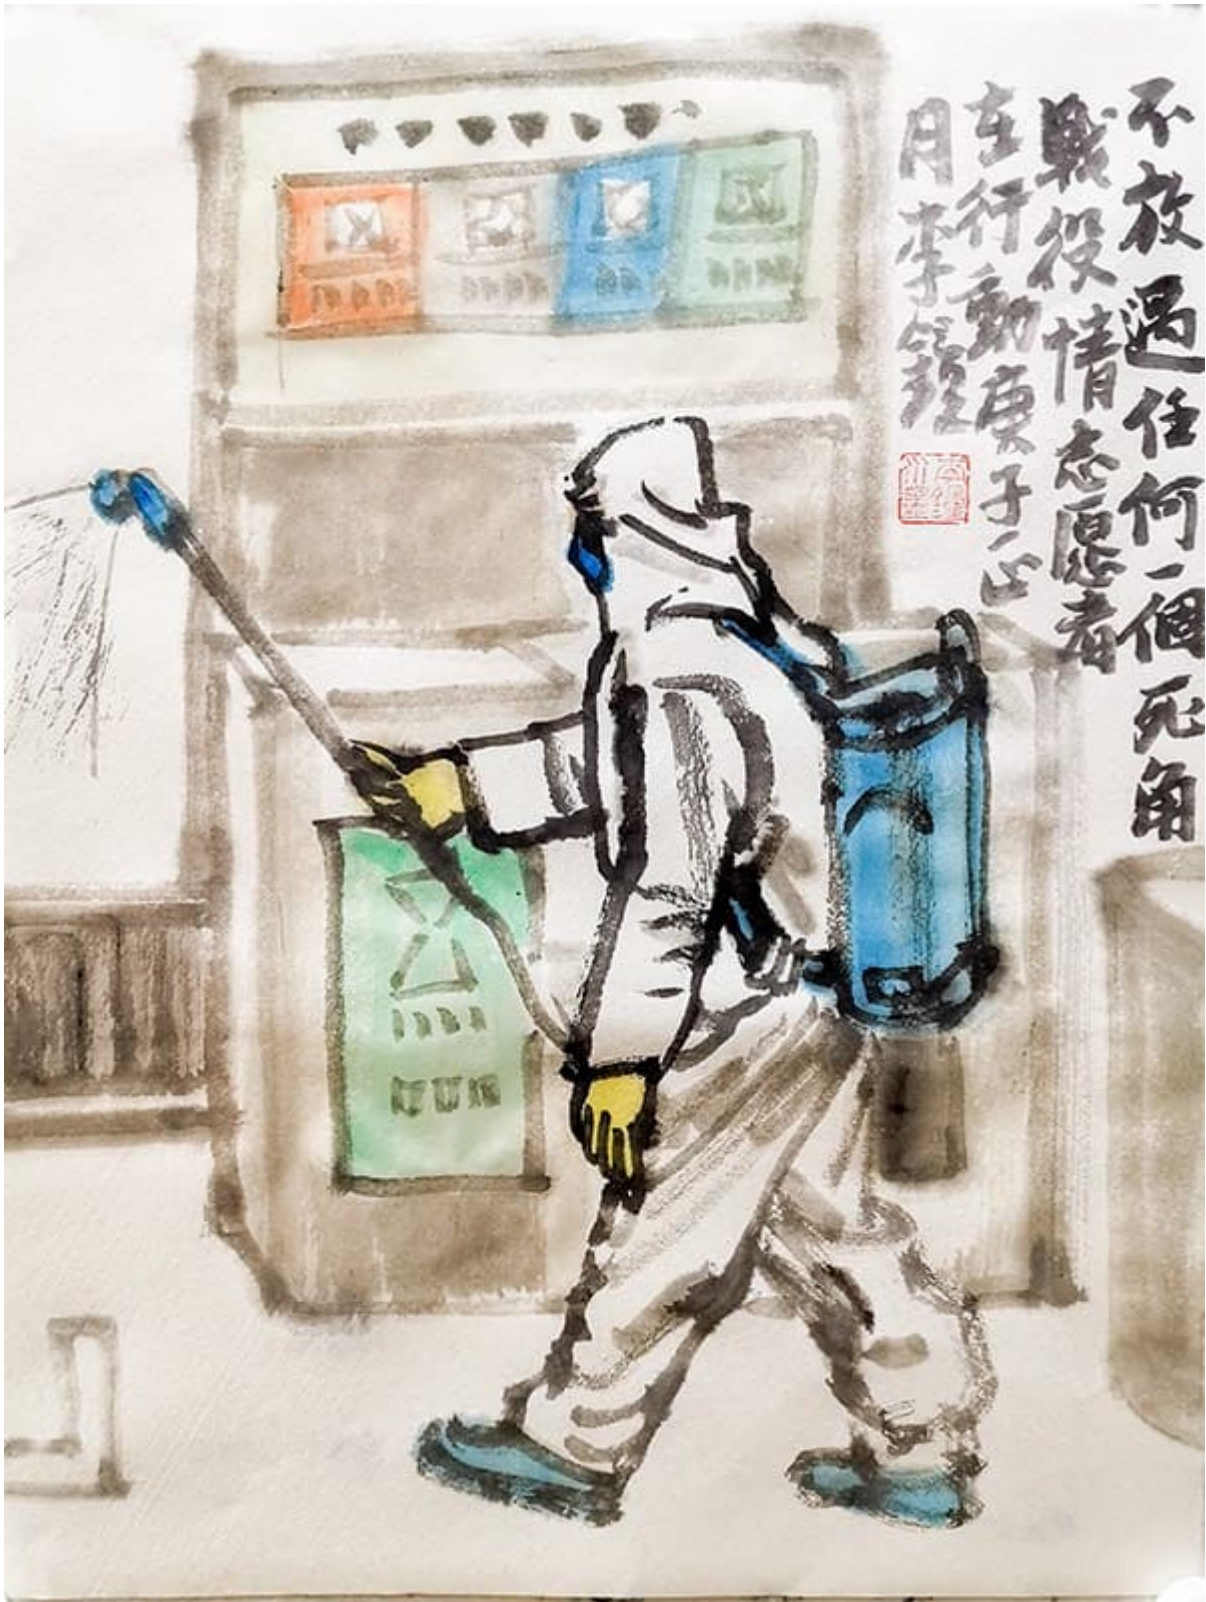 不放過任何一個死角
戰役情志愿者
在行動庚子正
月李